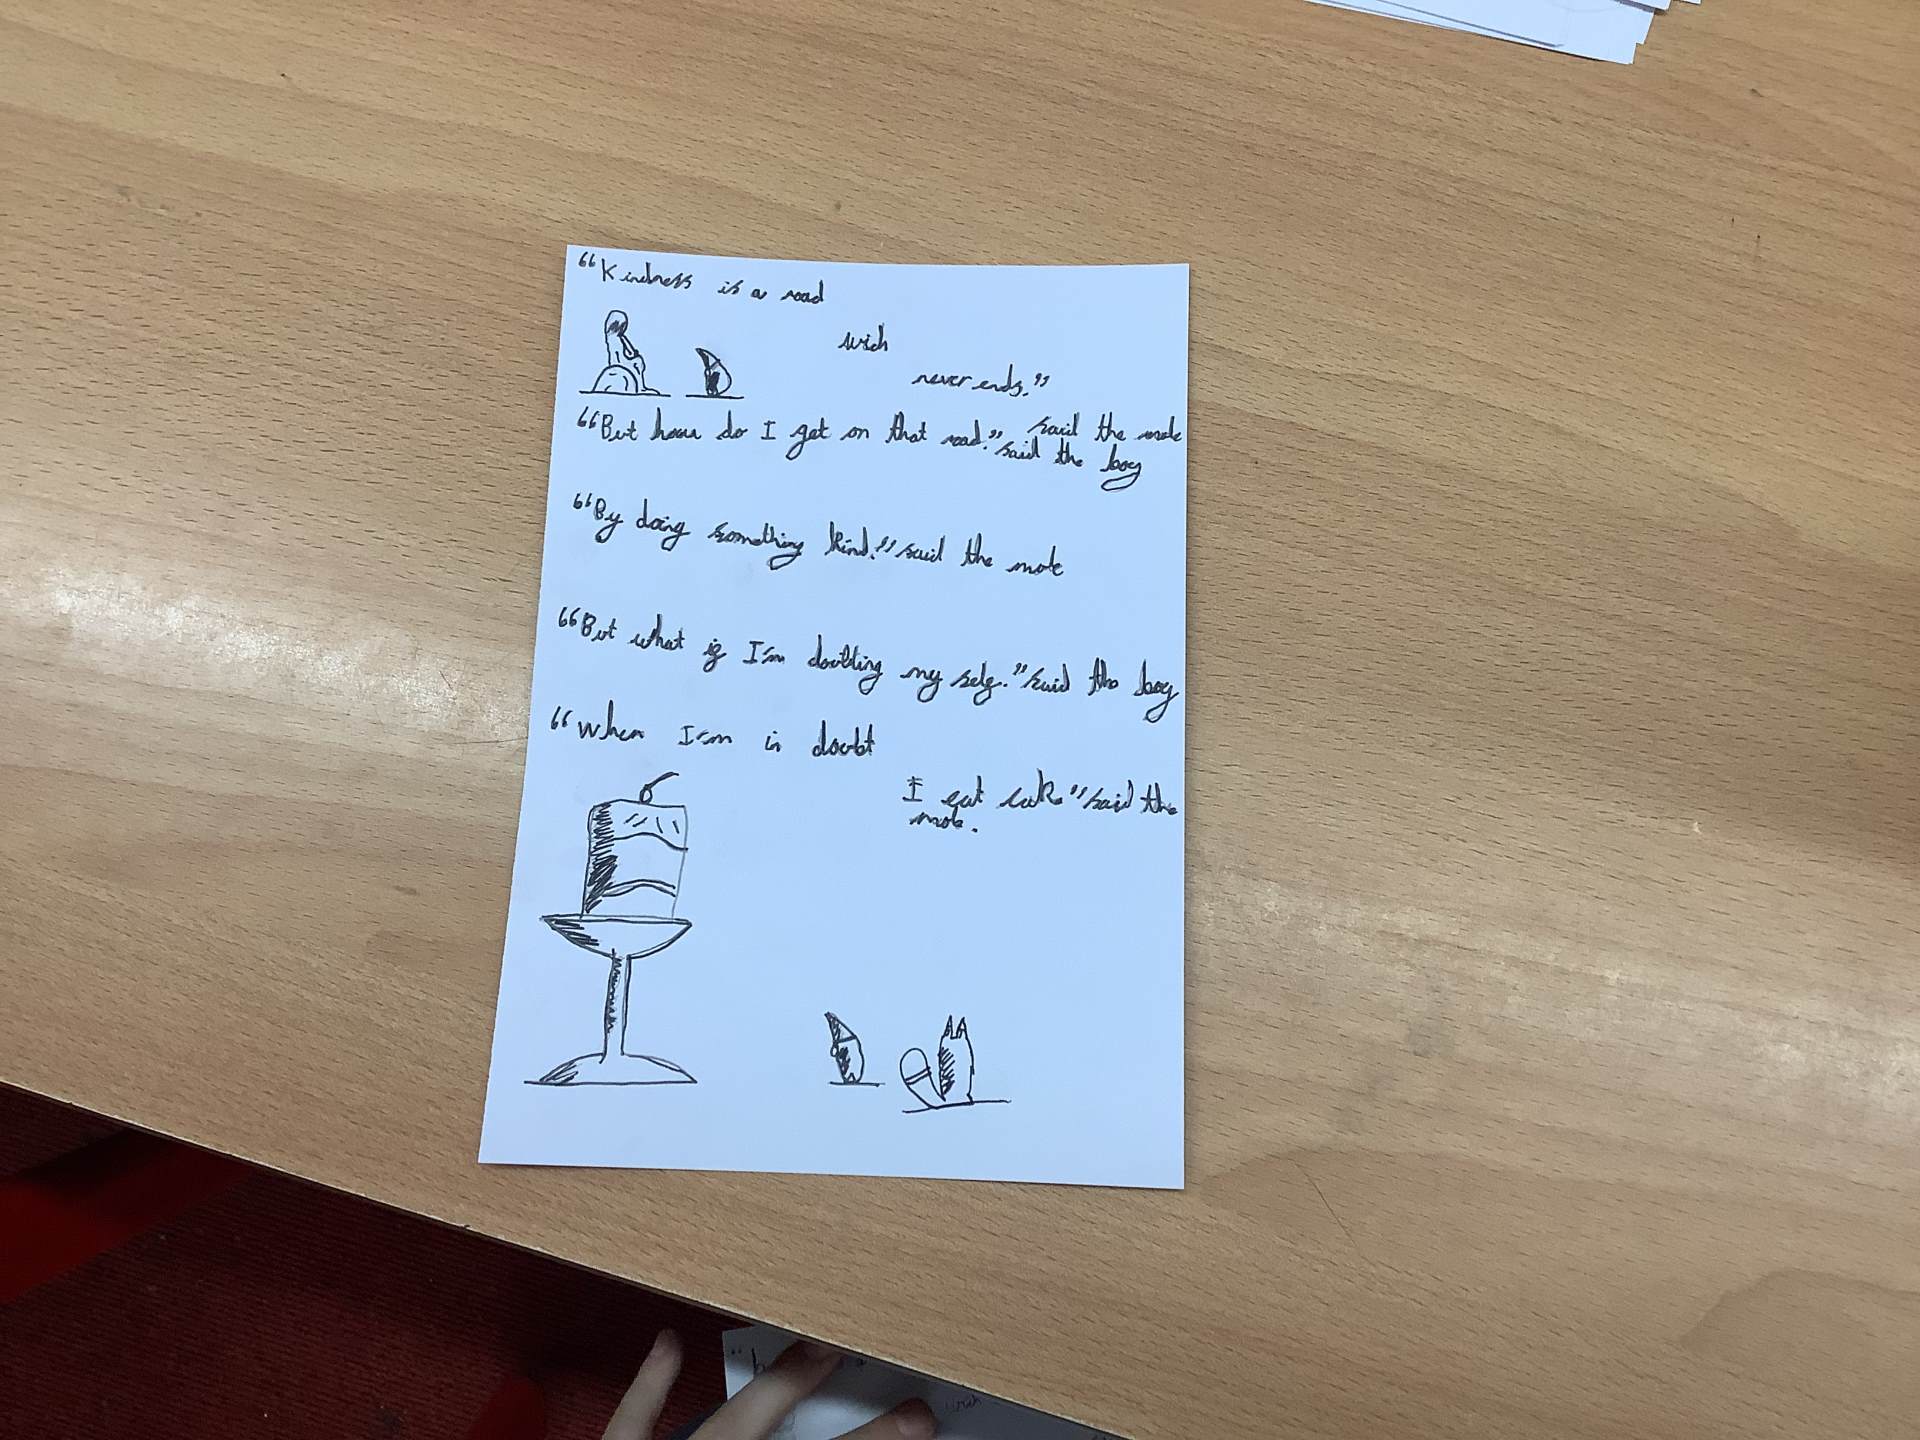 “Kindness is a road
wich
never ends.”
said the mole
“But how do I get on that road.” said the boy
“By doing something kind.” said the mole
“But what if I'm doubting my self.” said the boy
“When I'm in doubt
I eat cake” said the
mole.